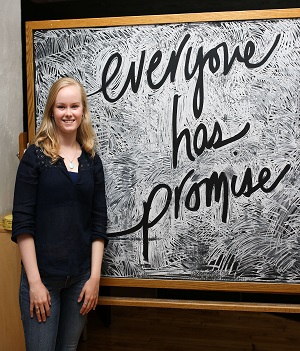 everyone
has
promise